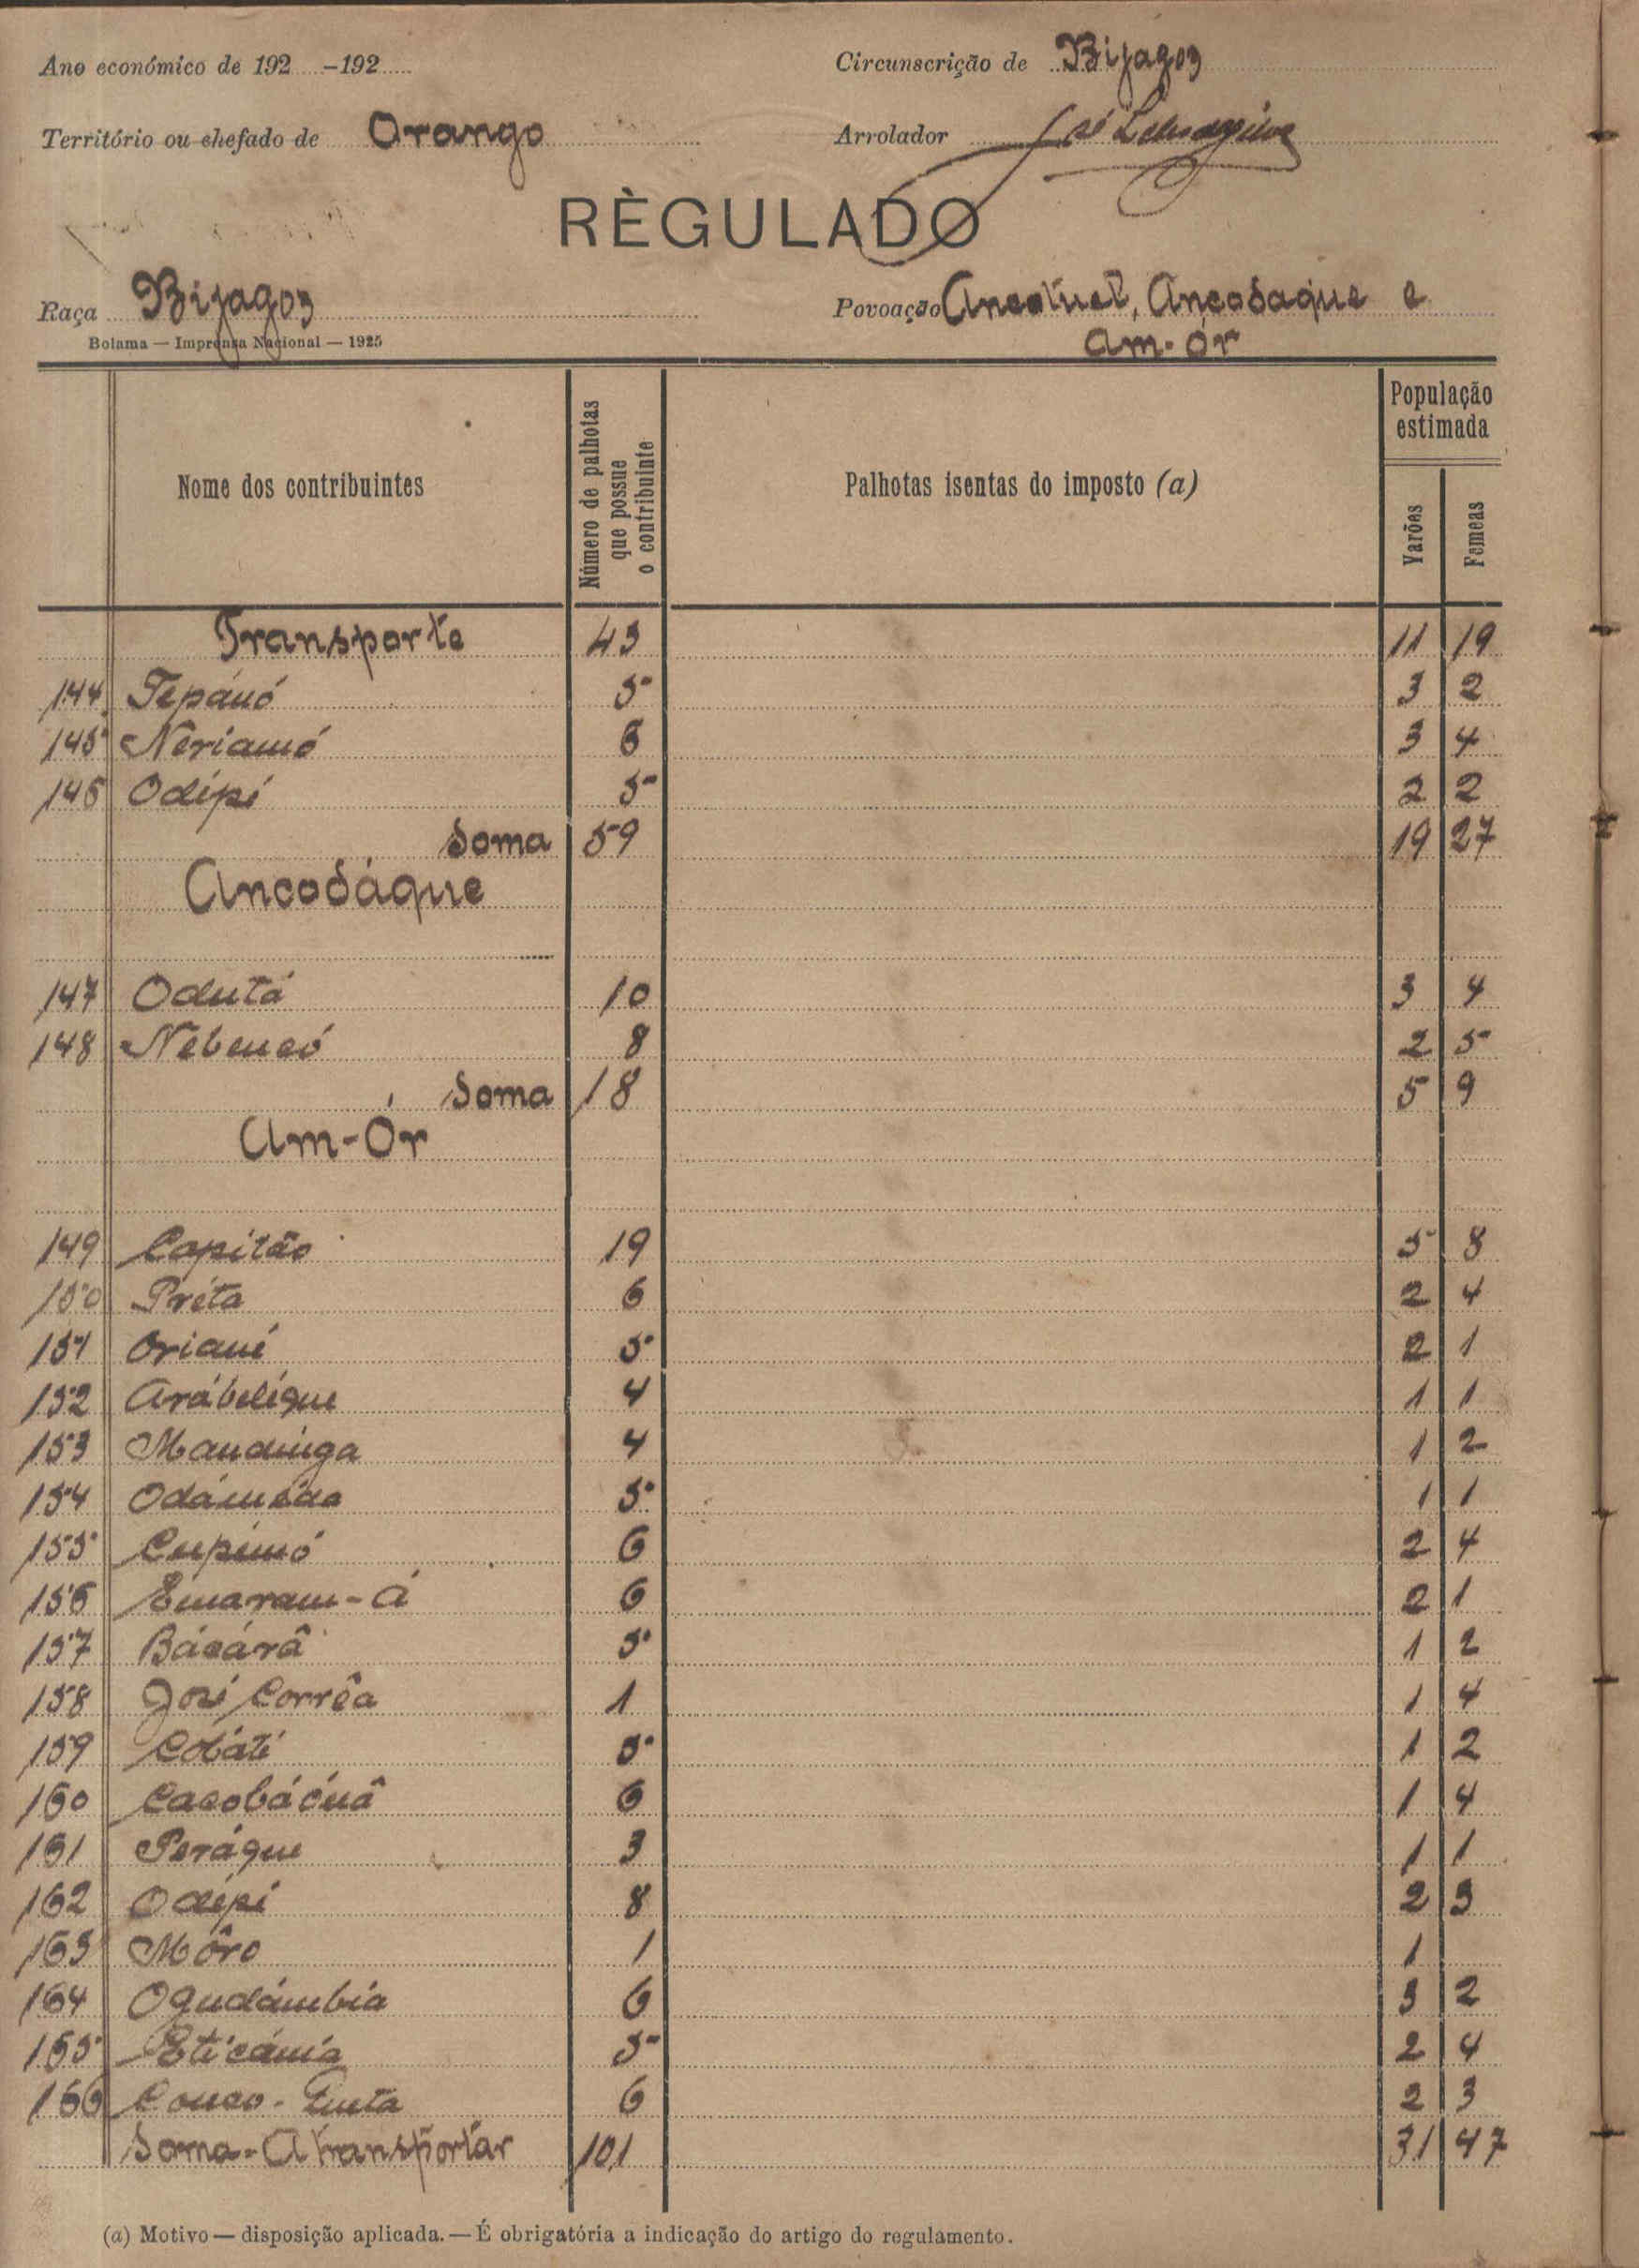 Ano económico de 192 -192 Circunscrição de Bijagoz
Território ou chefado de Orango Arrolador José
RÈGULADO
Raça Bijagoz Povoação Ancodaque e
Am-ór
Bolama — Imprensa Nacional — 1925
Nome dos contribuintes
Número de palhotas que possue o contribuinte
Palhotas isentas do imposto (a)
População estimada
Varões
Femeas
Transporte 43 11 19
144 Tepánó 5 3 2
145 Nêriamó 6 3 4
146 Odípi 5 2 2
Soma 59 19 27
Ancodáque
147 Odutá 10 3 4
148 Nebeucó 8 2 5
Soma 18 5 9
Am-Ór
149 Capitão 19 5 8
150 Préta 6 2 4
151 Oriané 5 2 1
152 Arábeléque 4 1 1
153 Mandinga 4 1 2
154 5 1 1
155 Cupinnó 6 2 4
156 Emaram-á 6 2 1
157 Bácárâ 5 1 2
158 José Corrêa 1 1 4
159 Cobáti 5 1 2
160 Cacobácuâ 6 1 4
161 Peráque 3 1 1
162 Odépi 8 2 3
163 Môro 1 1
164 Ogudámbia 6 3 2
165 Eticánia 5 2 4
166 6 2 3
Soma-A transportar 101 31 47
(a) Motivo — disposição aplicada. — É obrigatória a indicação do artigo do regulamento.